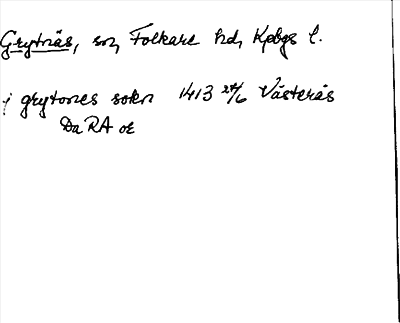 Grytnäs, sn, Folkare hd, Kpbgs l.
j grytones sokn 1413 24/6 Västerås
Da RA or